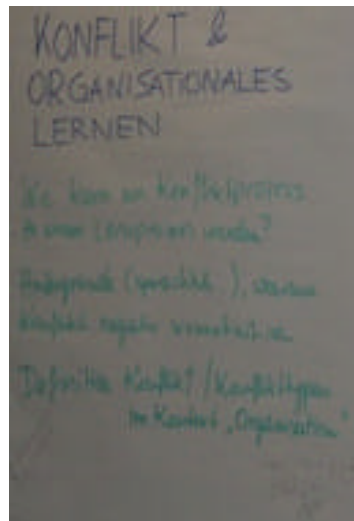 KONFLIKT &
ORGANISATIONALES
LERNEN
Wie kann ein Konfliktprozess
zu einem Lernprozess werden?
Hintergründe (), warum
Konflikt negativ
Definition Konflikt / Konflikttypen
im Kontext „Organisation“